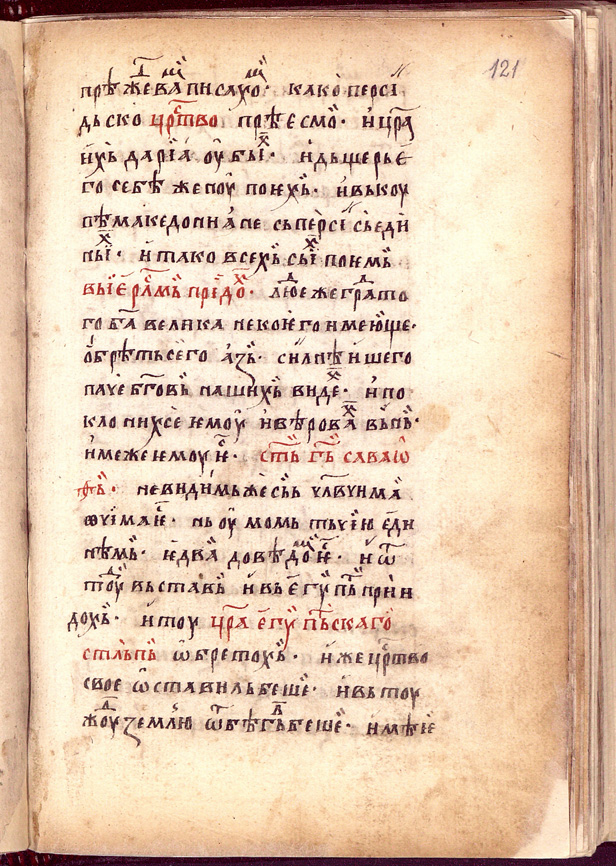 121
прѣжⷣевамъ писахоⷨ· како персі
дьско црⷭ҇тво прѣемо· и цр҃а
ихь дарїа оубыⷯ· и дьщерь е
го себѣ же поу поюхь· и выкоу
пѣ македонїане сь персі сьеди
ныⷯ· и тако всехь сыⷯ поюмь
вь іеⷭрⷭлимь прїидоⷯ· людⷣе же граⷣ того
го б҃а велика некоюго имеюще·
обрѣтьсего азь· силнѣишего
паче бг҃овь нашихь видеⷯ· и по
клонихсе юмоу и вѣроваⷯ вьнь·
имеже юмоу юⷭ· ст҃ь гь҃ саваѡ
ѳь· невидимь же сьи чл҃вчима
ѡчїмаюⷭ· нь оумомь тьчїю еди
нѣмь· юдва доведомь юⷭ· и ѿ
тоуⷣ вьставь и вь егупьть прїи
дохь· и тоу цр҃а егупьтскаго
стльпь ѡбретохь· иже црⷭ҇тво
свое ѡставиль беше· и вь тоу
жⷣоу землю ѿбѣгьль беше· имѣю